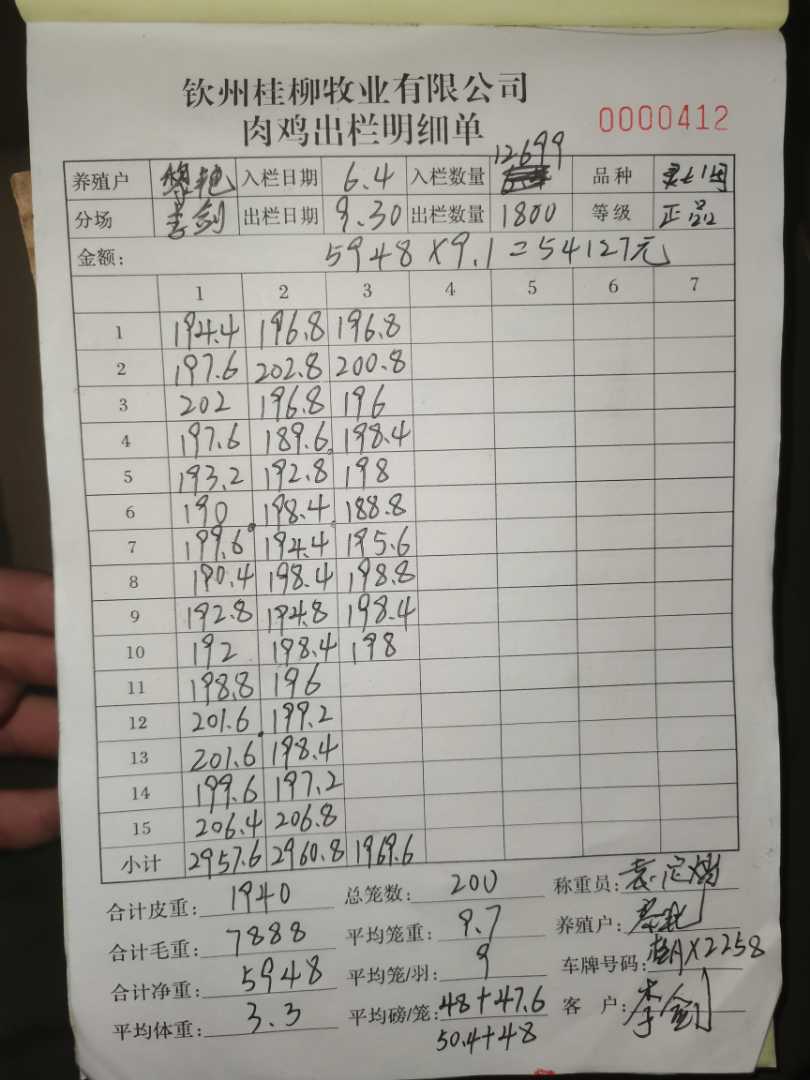 钦州桂柳牧业有限公司
肉鸡出栏明细单 0000412
养殖户 入栏日期 6.4 入栏数量 12699 品种
分场 李剑 出栏日期 9.30 出栏数量 1800 等级 正品
金额: 5948×9.1=54127元
1 2 3 4 5 6 7
1 194.4 196.8 196.8
2 197.6 202.8 200.8
3 202 196.8 196
4 197.6 189.6 198.4
5 193.2 192.8 198
6 190 198.4 188.8
7 199.6 194.4 195.6
8 190.4 198.4 198.8
9 192.8 194.8 198.4
10 192 198.4 198
11 198.8 196
12 201.6 199.2
13 201.6 198.4
14 199.6 197.2
15 206.4 206.8
小计 2957.6 2960.8 1969.6
合计皮重: 1940 总笼数: 200 称重员:
合计毛重: 7888 平均笼重: 9.7 养殖户:
合计净重: 5948 平均笼/羽: 9 车牌号码: X2258
平均体重: 3.3 平均磅/笼: 48+47.6 客 户: 李剑
50.4+48